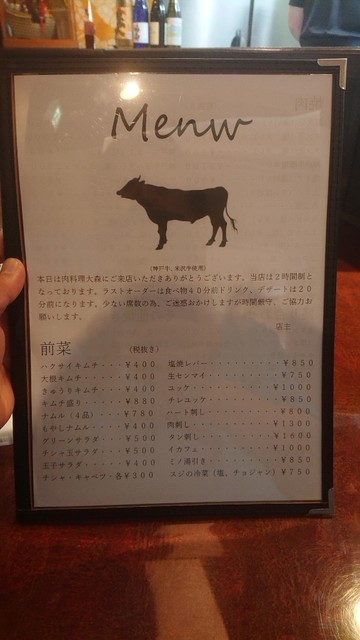 Menu
(神戸牛、米沢牛使用)
本日は肉料理大森にご来店いただきありがとうございます。当店は2時間制と
なっております。ラストオーダーは食べ物40分前ドリンク、デザートは20
分前になります。少ない席数の為、ご迷惑おかけしますが時間厳守、ご協力お
願いします。
店主
前菜 (税抜き)
ハクサイキムチ・・・¥400
大根キムチ・・・・・¥400
きゅうりキムチ・・・¥400
キムチ盛り・・・・・¥880
ナムル(4品)・・・・¥780
もやしナムル・・・・¥400
グリーンサラダ・・・¥500
チシャ玉サラダ・・・¥500
玉子サラダ・・・・・¥400
チシャ・キャベツ・各¥300
塩焼レバー・・・・・・・・・・¥850
生センマイ・・・・・・・・・・¥750
ユッケ・・・・・・・・・・・・¥1000
テレユッケ・・・・・・・・・・¥850
ハート刺し・・・・・・・・・・¥800
肉刺し・・・・・・・・・・・・¥1300
タン刺し・・・・・・・・・・・¥1600
イカフェ・・・・・・・・・・・¥1000
ミノ湯引き・・・・・・・・・・¥850
スジの冷菜(塩、チョジャン)¥750